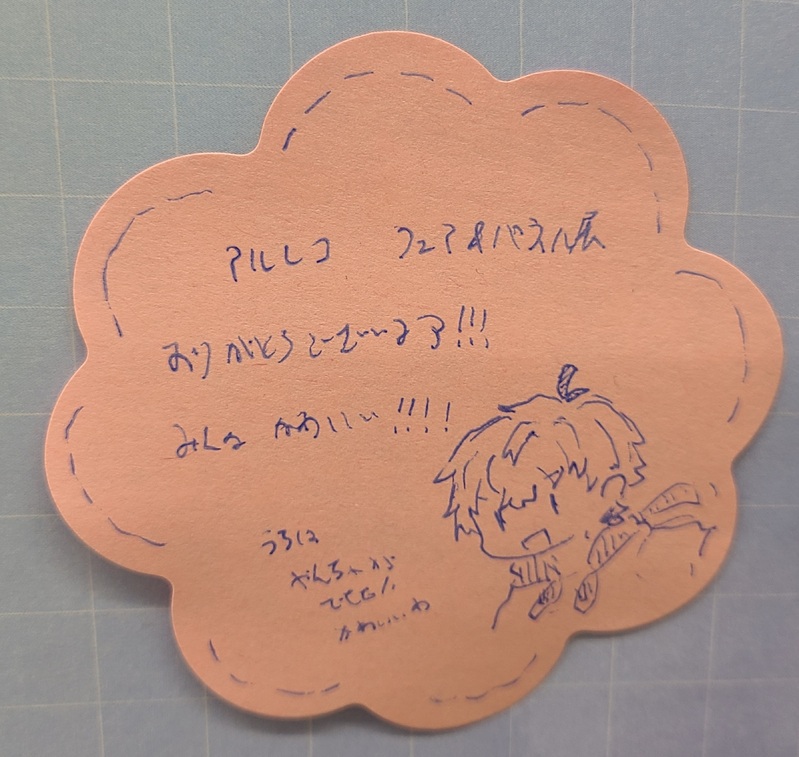 アルレコ フェア&パネル展
ありがとうございます!!!
みんな かわいい!!!!
うちは
やんちゃが
かわいいわ